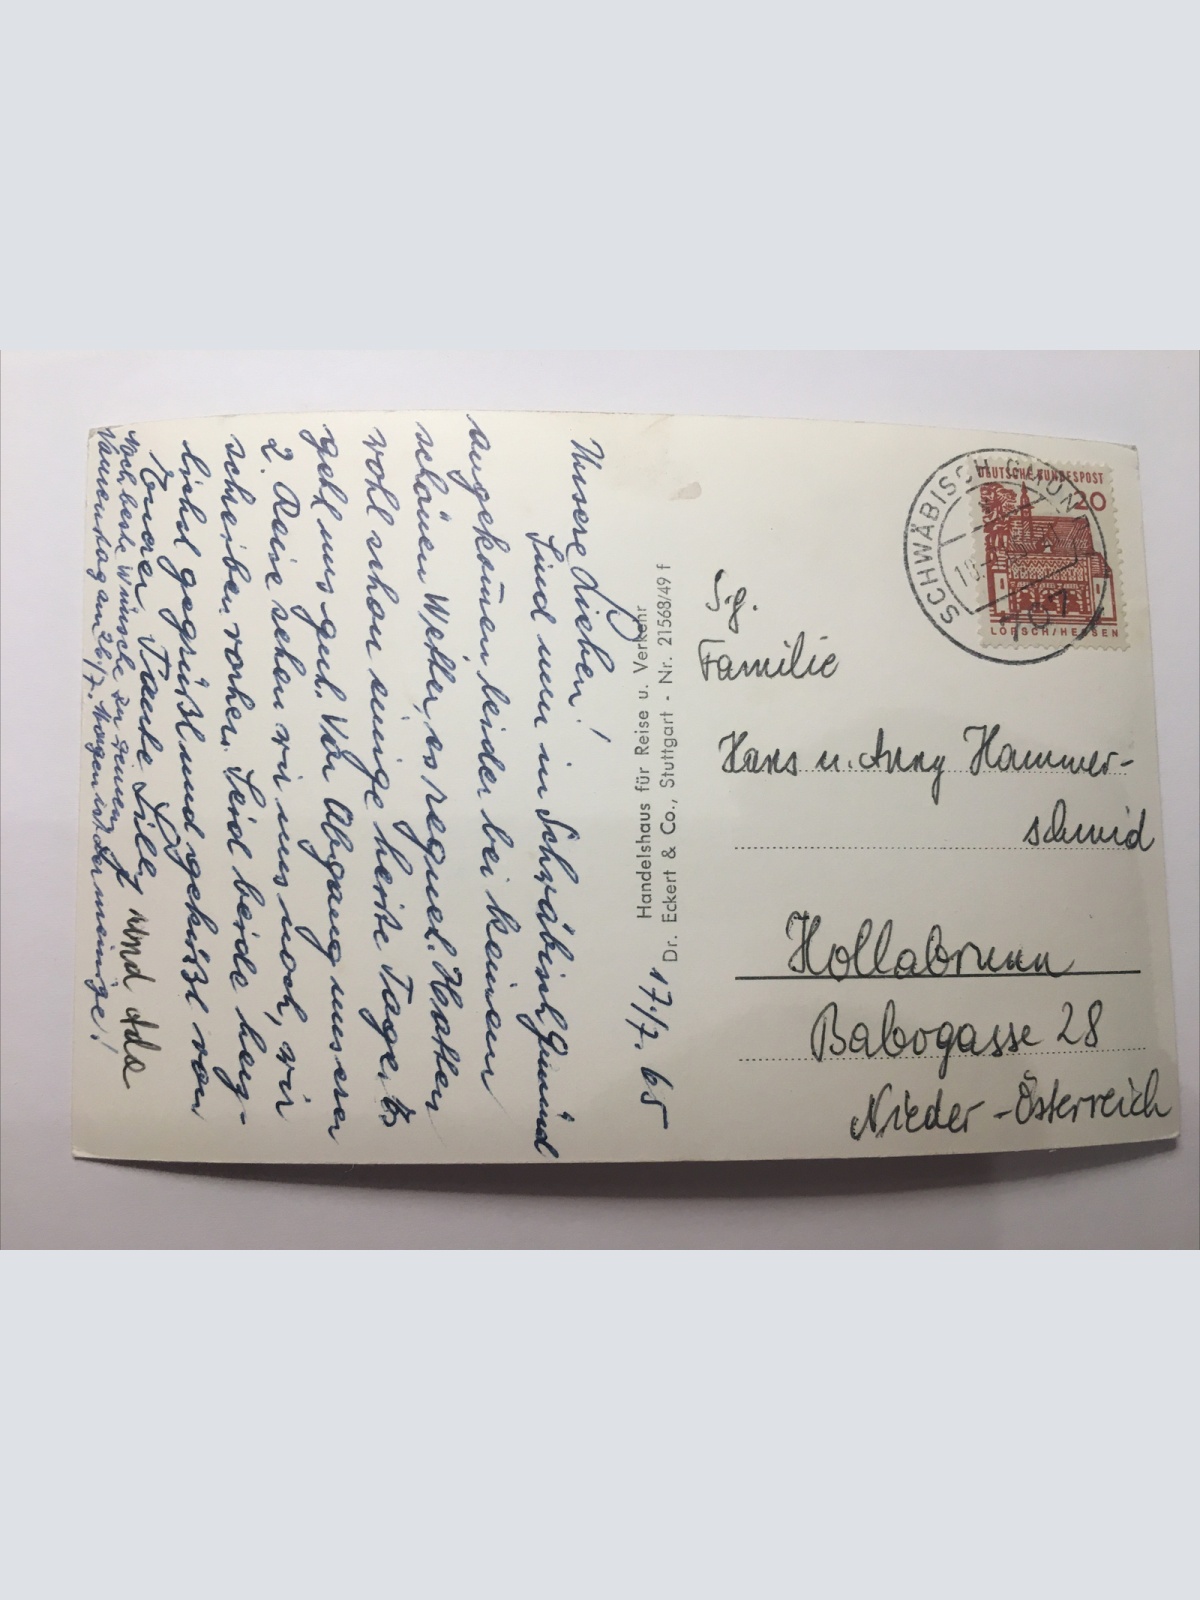 17./7. 65
Unsere Lieben!
Sind nun in Schwäbisch Gmünd
angekom̄en leider bei keinem
schönen Wetter, es regnet. Hatten
wohl schon einige heiße Tage. Es
geht uns gut. Vor Abgang unserer
2. Reise sehen wir uns noch, wir
schreiben vorher. Seid beide herz-
lichst gegrüßt und geküßt von
Eurer Tante Lilly und Ada
Noch beste Wünsche zu Deinem
Namenstag am 26./7. Morgen ist der meinige!
Handelshaus für Reise u. Verkehr
Dr. Eckert & Co., Stuttgart - Nr. 21568/49 f
SCHWÄBISCH GMÜND
707
DEUTSCHE BUNDESPOST
20
LORSCH/HESSEN
S.g.
Familie
Hans u. Anny Hammer-
schmid
Hollabrunn
Babogasse 28
Nieder-Österreich